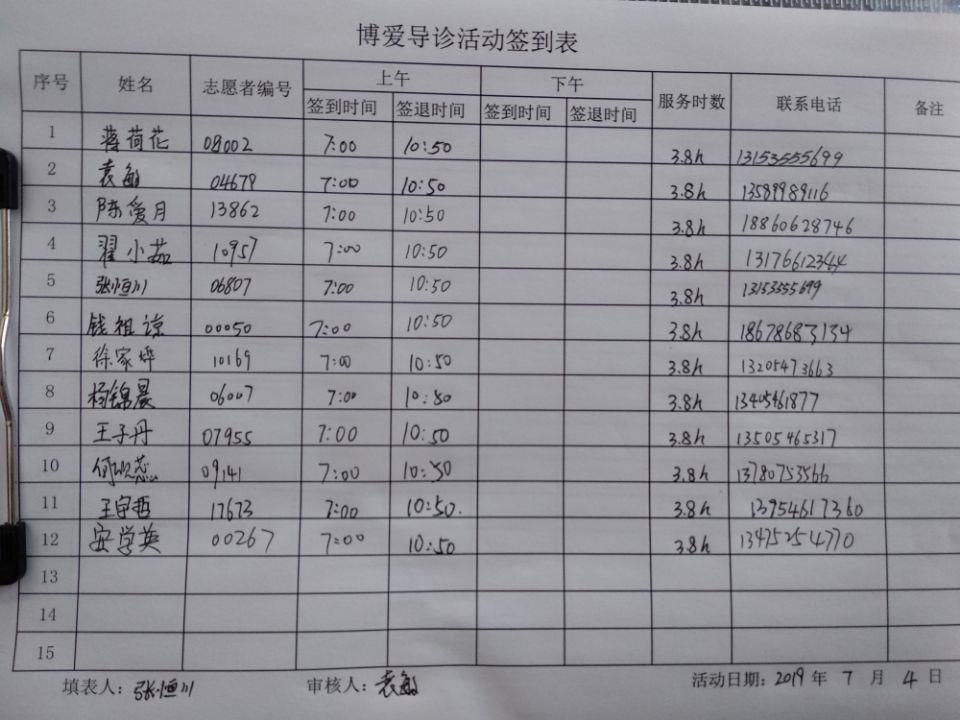 博爱导诊活动签到表
序号 姓名 志愿者编号 上午 下午 服务时数 联系电话 备注
签到时间 签退时间 签到时间 签退时间
1 蒋荷花 08002 7:00 10:50 3.8h 13153555699
2 袁敏 04679 7:00 10:50 3.8h 13589989116
3 陈爱月 13862 7:00 10:50 3.8h 18860628746
4 翟小茹 10957 7:00 10:50 3.8h 13176612344
5 张恒川 06807 7:00 10:50 3.8h 13153555699
6 钱祖谅 00050 7:00 10:50 3.8h 18678683134
7 徐家坤 10169 7:00 10:50 3.8h 13205473663
8 杨锦晨 06007 7:00 10:50 3.8h 13405461877
9 王子丹 07955 7:00 10:50 3.8h 13505465317
10 09141 7:00 10:50 3.8h 13780753566
11 王宇哲 17673 7:00 10:50. 3.8h 13954617360
12 安学英 00267 7:00 10:50 3.8h 13475254770
13
14
15
填表人：张恒川 审核人：袁敏 活动日期：2019年 7 月 4 日